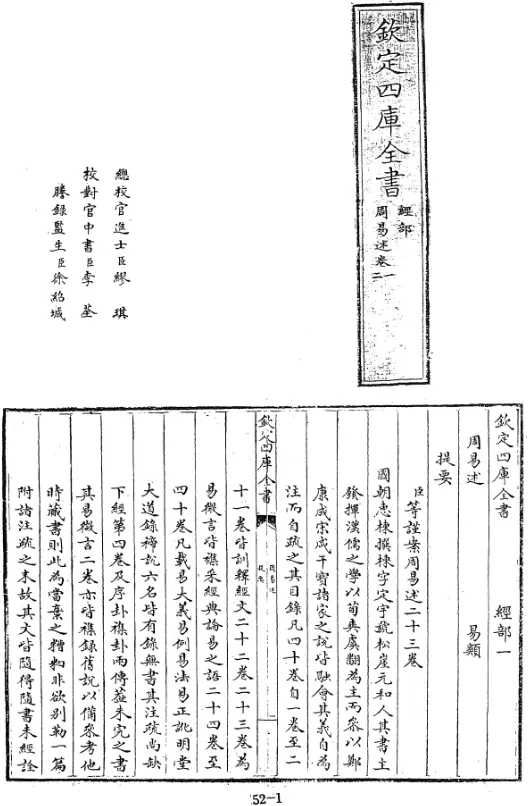 欽定四庫全書
經部
周易述卷一
二
總校官進士臣繆琪
校對官中書臣李荃
謄錄監生臣徐紹城
欽定四庫全書 經部一
周易述 易類
提要
臣等謹案周易述二十三卷
國朝惠棟撰棟字定宇號松崖元和人其書主
發揮漢儒之學以荀爽虞翻為主而參以鄭
康成宋咸干寶諸家之說皆融會其義自為
注而自疏之其目錄凡四十卷自一卷至二
欽定四庫全書
周易述
提要
一
十一卷皆訓釋經文二十二卷二十三卷為
易微言皆襍采經典論易之語二十四卷至
四十卷凡載易大義易例易法易正訛明堂
大道錄禘說六名皆有錄無書其注疏尚缺
下經第四卷及序卦襍卦兩傳葢未完之書
其易微言二卷亦皆襍錄舊說以備參考他
時藏書則此為當棄之糟粕非欲別勒一篇
附諸注疏之末故其文皆隨得隨書未經詮
52-1